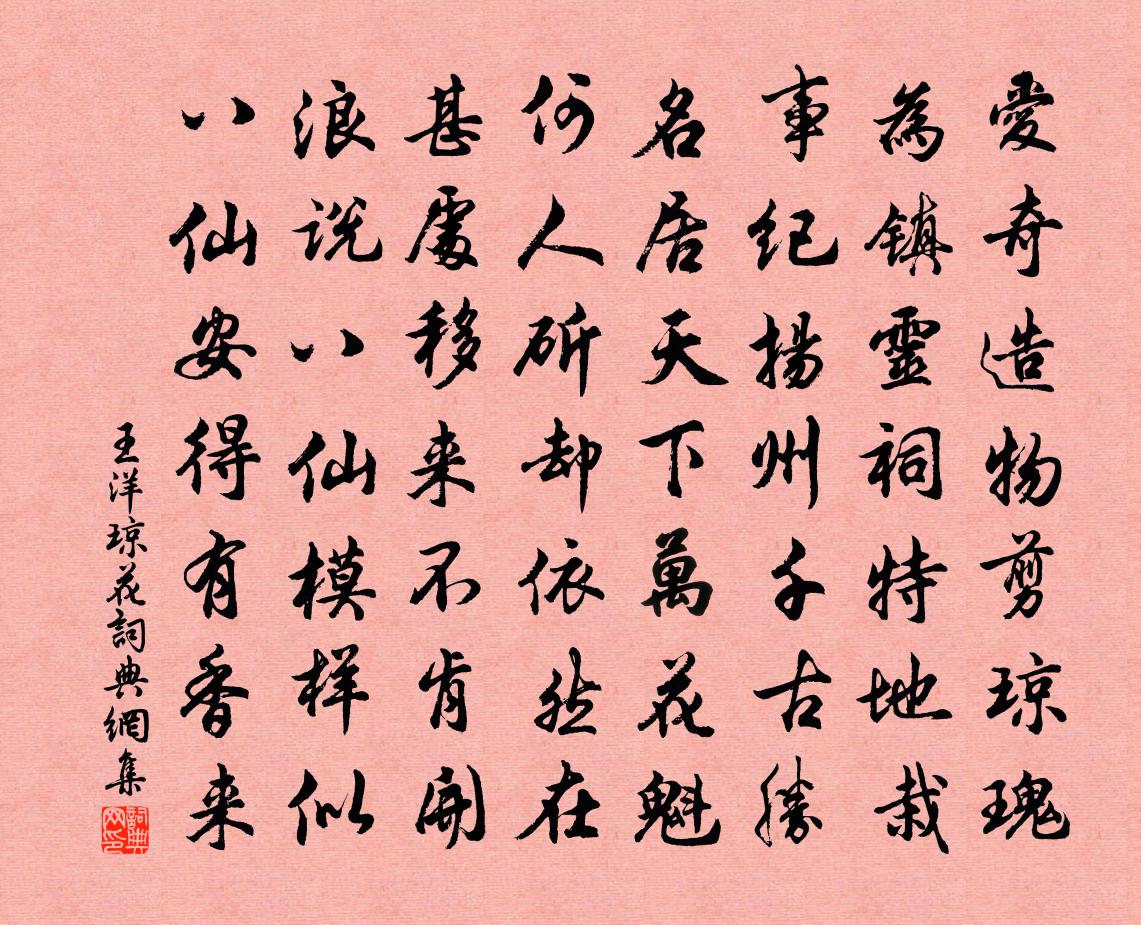 愛奇造物剪琼瑰
為镇靈祠特地栽
事纪揚州千古勝
名居天下萬花魁
何人斫却依然在
甚處移来不肯開
浪说八仙模样似
八仙安得有香来
王洋琼花詞典網集
詞典网印